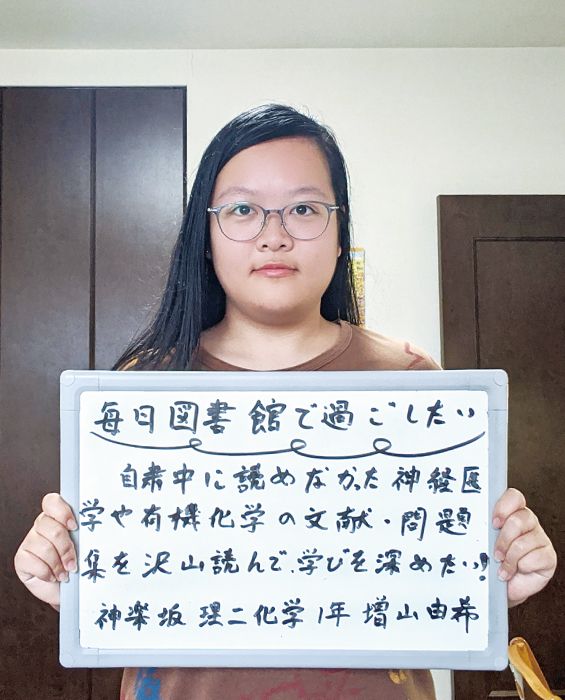 毎日図書館で過ごしたい
自粛中に読めなかった神経医
学や有機化学の文献・問題
集を沢山読んで、学びを深めたいっ!
神楽坂 理二化学1年 増山由希